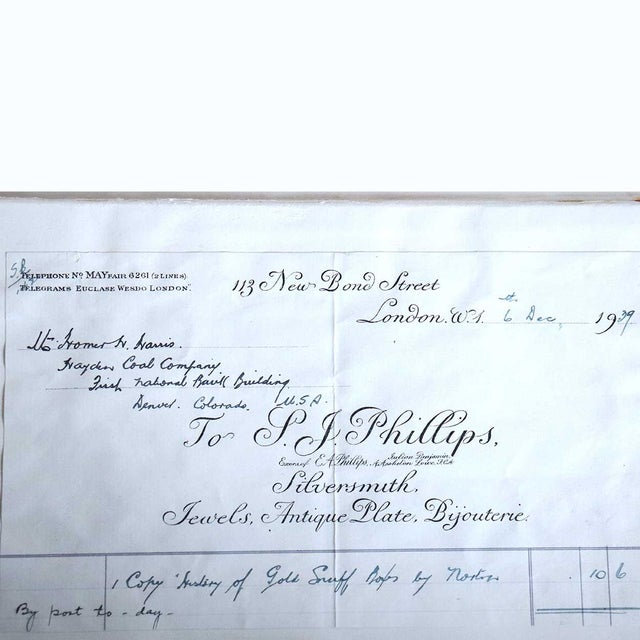 TELEPHONE Nº MAYFAIR 6261 (2 LINES)
TELEGRAMS EUCLASE WESDO LONDON".
113 New Bond Street
London. W.1. 6th Dec, 1939
Homer W. Harris.
Hayden Coal Company
First National Bank Building
Denver. Colorado. U.S.A.
To S. J. Phillips,
Execs of E. A. Phillips,
Silversmith,
Jewels, Antique Plate, Bijouterie.
1 Copy "History of Gold Snuff Boxes by Norton 10 6
By post to-day-